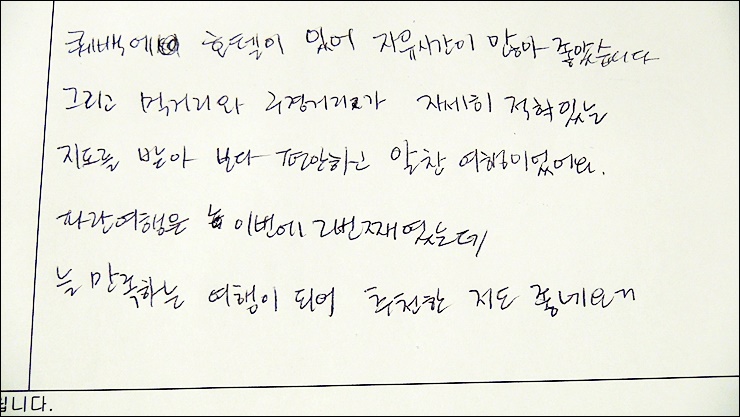 퀘백에 호텔이 있어 자유시간이 많아 좋았습니다
그리고 먹거리와 구경거리가 자세히 적혀있는
지도를 받아 보다 편안하고 알찬 여행이었어요.
파란여행은 이번에 2번째였는데
늘 만족하는 여행이 되어 추천한 저도 좋네요^^
됩니다.